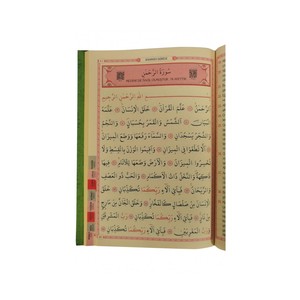 سُورَةُ الرَّحْمٰنِ
بِسْمِ اللهِ الرَّحْمٰنِ الرَّحِيمِ
اَلرَّحْمٰنُ عَلَّمَ الْقُرْاٰنَ خَلَقَ الْاِنْسَانَ عَلَّمَهُ
الْبَيَانَ اَلشَّمْسُ وَالْقَمَرُ بِحُسْبَانٍ وَالنَّجْمُ
وَالشَّجَرُ يَسْجُدَانِ وَالسَّمَاءَ رَفَعَهَا وَوَضَعَ الْمِيزَانَ
اَلَّا تَطْغَوْا فِي الْمِيزَانِ وَاَقِيمُوا الْوَزْنَ بِالْقِسْطِ وَلَا
تُخْسِرُوا الْمِيزَانَ وَالْاَرْضَ وَضَعَهَا لِلْاَنَامِ فِيهَا
فَاكِهَةٌ وَالنَّخْلُ ذَاتُ الْاَكْمَامِ وَالْحَبُّ ذُو الْعَصْفِ
وَالرَّيْحَانُ فَبِاَيِّ اٰلَاءِ رَبِّكُمَا تُكَذِّبَانِ خَلَقَ
الْاِنْسَانَ مِنْ صَلْصَالٍ كَالْفَخَّارِ وَخَلَقَ الْجَانَّ مِنْ مَارِجٍ
مِنْ نَارٍ فَبِاَيِّ اٰلَاءِ رَبِّكُمَا تُكَذِّبَانِ رَبُّ الْمَشْرِقَيْنِ